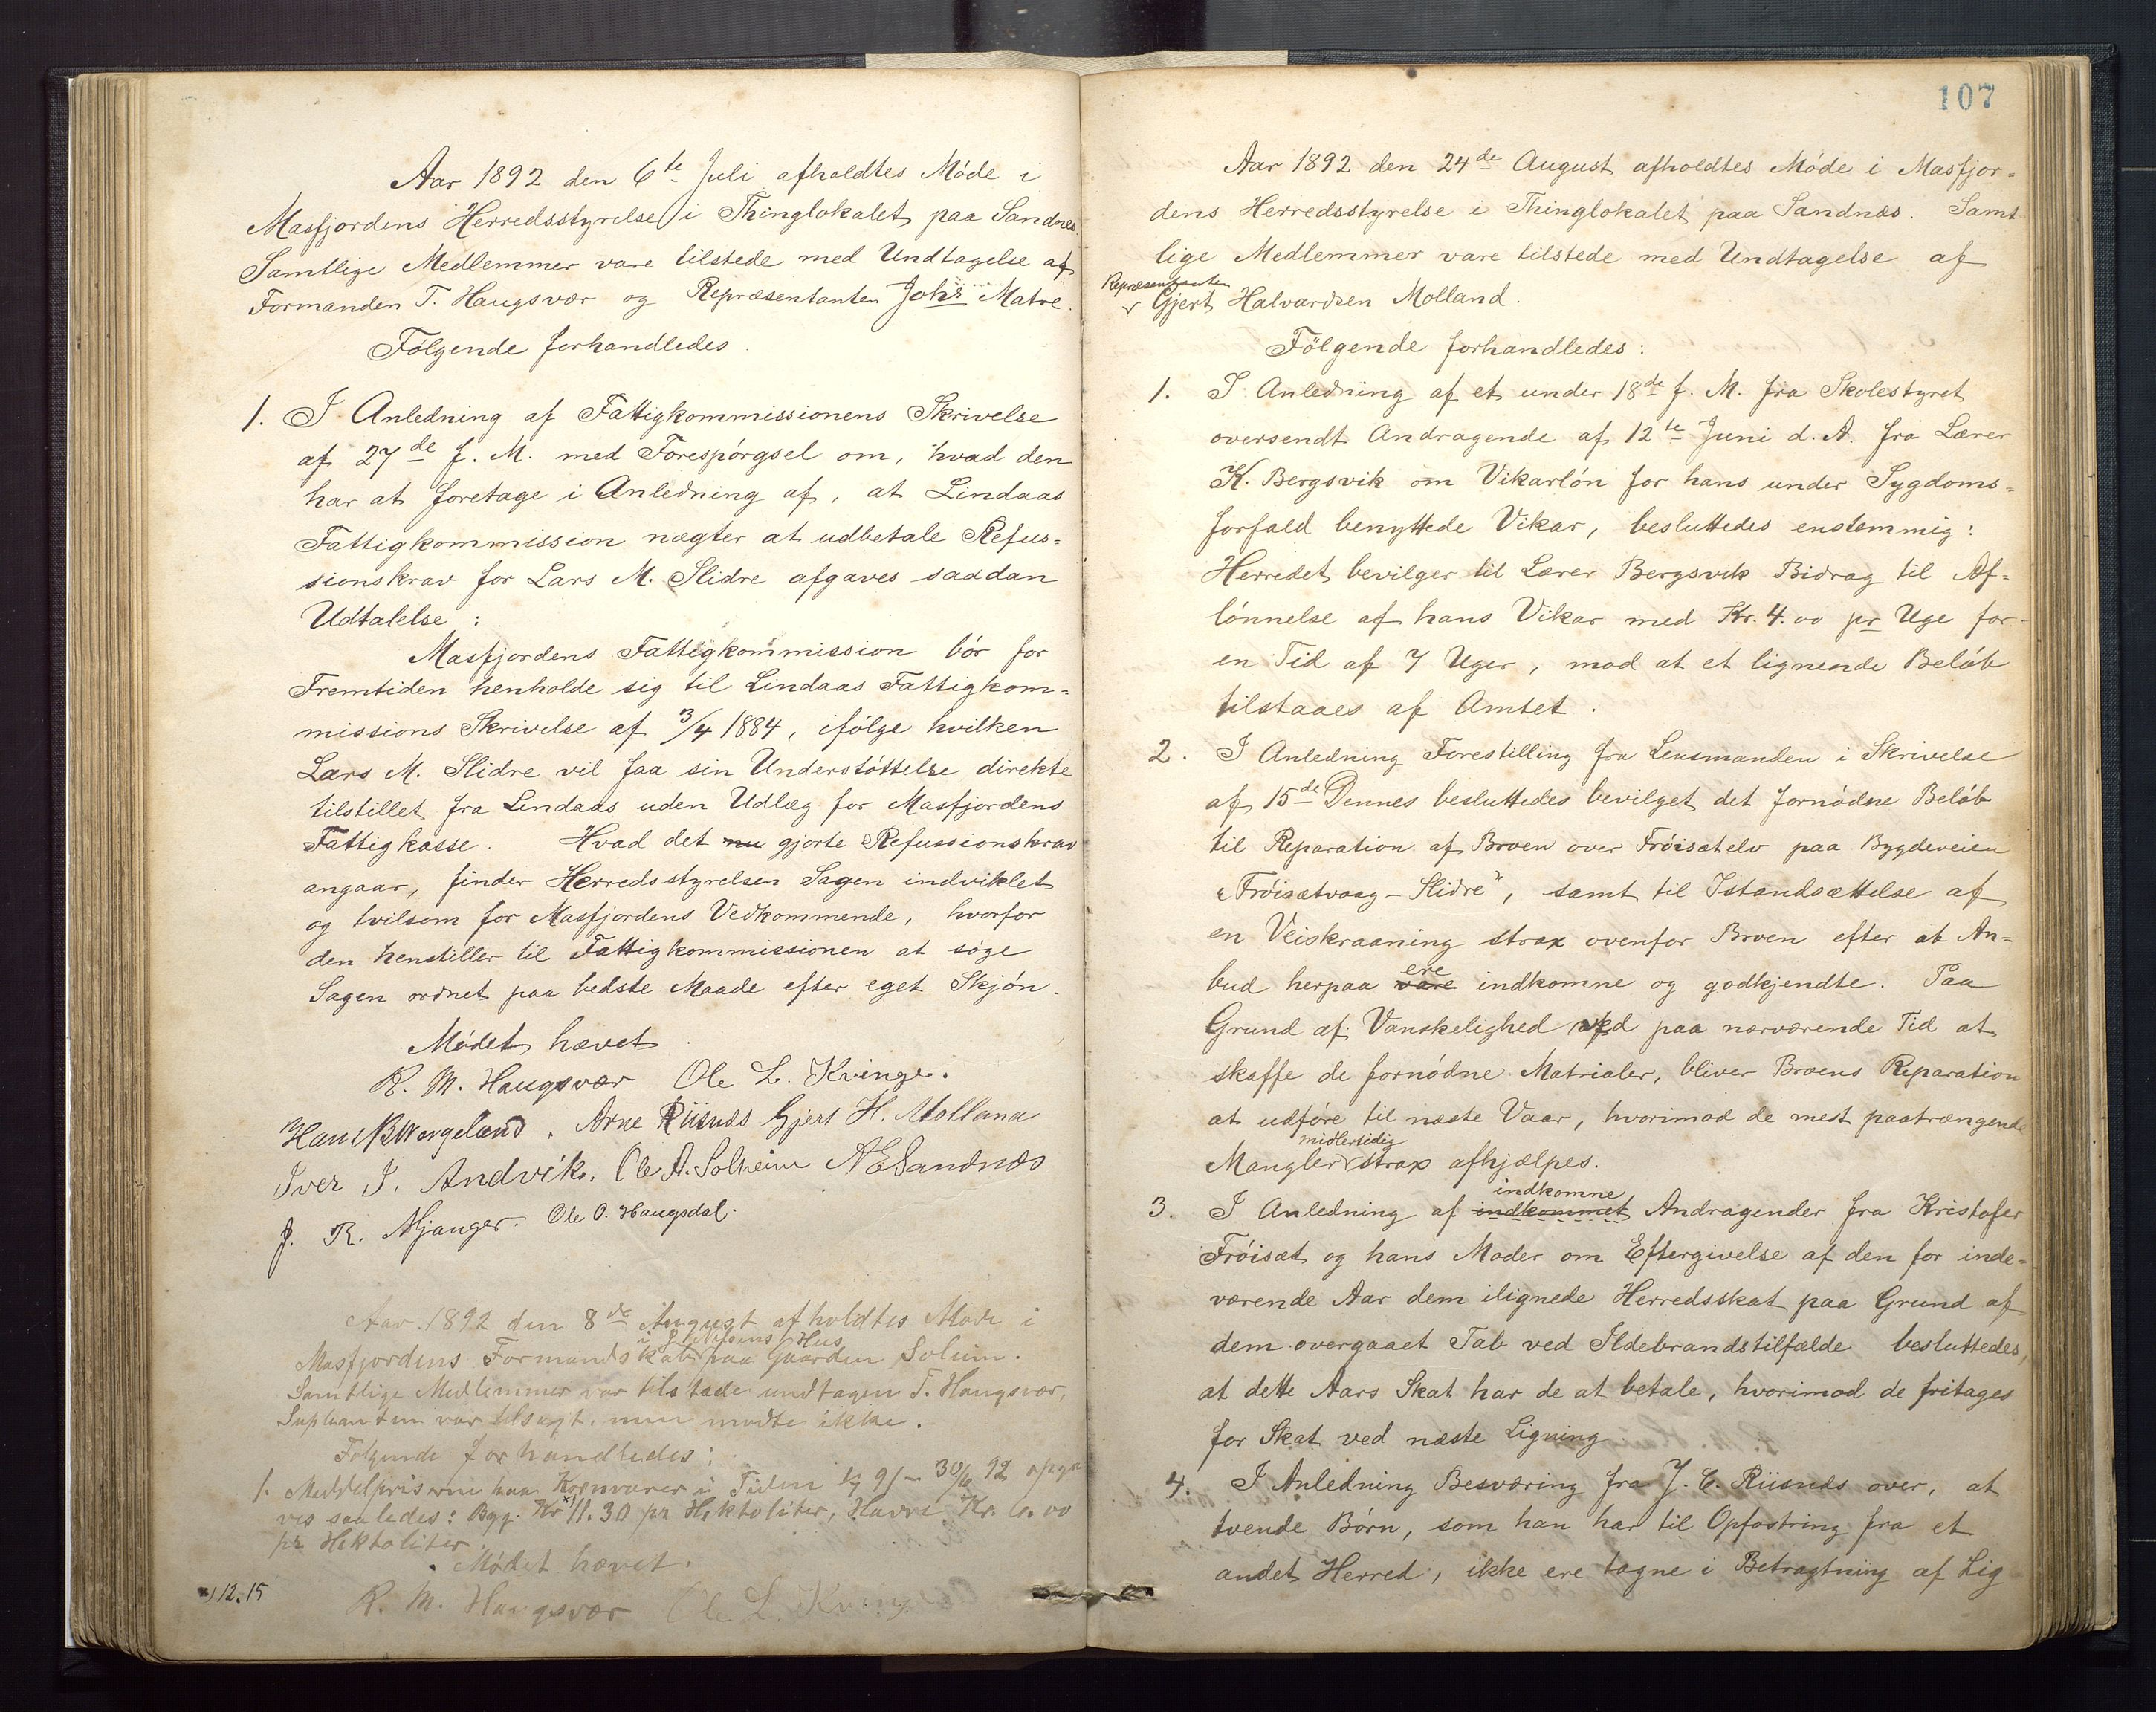 Aar 1892 den 6te Juli afholdtes Møde i
Masfjordens Herredsstyrelse i Thinglokalet paa Sandnes.
Samtlige Medlemmer vare tilstede med Undtagelse af
Formanden T. Haugsvær og Repræsentanten Johs Matre.
Følgende forhandledes.
1. I Anledning af Fattigkommissionens Skrivelse
af 27de f. M. med Forespørgsel om, hvad den
har at foretage i Anledning af, at Lindaas
Fattigkommission nægter at udbetale Refus=
sionskrav for Lars M. Slidre afgaves saadan
Udtalelse:
Masfjordens Fattigkommission bør for
Fremtiden henholde sig til Lindaas Fattigkom=
missions Skrivelse af 3/4 1884, ifølge hvilken
Lars M. Slidre vil faa sin Understøttelse direkte
tilstillet fra Lindaas uden Udlæg for Masfjordens
Fattigkasse. Hvad det nu gjorte Refussionskrav
angaar, finder Herredsstyrelsen Sagen indviklet
og tvilsom for Masfjordens Vedkommende, hvorfor
den henstiller til Fattigkommissionen at søge
Sagen ordnet paa bedste Maade efter eget Skjøn.
Mødet hævet.
R. M. Haugsvær Ole L. Kvinge.
Hans B Wergeland. Arne Riisnæs Gjert H. Molland
Iver I. Andvik. Ole A. Solheim A E Sandnæs
J. R. Mjanger. Ole O. Haugsdal.
Aar 1892 den 8de August afholdtes Møde i
i Hus
Masfjordens Formandskab paa Gaarden Solem.
Samtlige Medlemmer var tilstede undtagen T. Haugsvær,
Suplianten var tilsagt, men mødte ikke.
Følgende forhandledes:
1. Middelpriserne paa Kornvarer i Tiden 1/7 91 – 30/6 92 opga
ves saaledes: Byg. Kr x) 11.30 pr Hektoliter, Havre Kr.
pr Hektoliter.
Mødet hævet.
x) 12.15
R. M. Haugsvær Ole L. Kvinge
107
Aar 1892 den 24de August afholdtes Møde i Masfjor=
dens Herredsstyrelse i Thinglokalet paa Sandnæs. Samt
lige Medlemmer vare tilstede med Undtagelse af
Repræsentanten
Gjert Halvardsen Molland.
Følgende forhandledes:
1. I Anledning af et under 18de f. M. fra Skolestyret
oversendt Andragende af 12te Juni d. A. fra Lærer
K. Bergsvik om Vikarløn for hans under Sygdoms=
forfald benyttede Vikar, besluttedes enstemmig:
Herredet bevilger til Lærer Bergsvik Bidrag til Af=
lønnelse af hans Vikar med Kr. 4.00 pr Uge for
en Tid af 7 Uger, mod at et lignende Beløb
tilstaaes af Amtet.
2. I Anledning Forestilling fra Lensmanden i Skrivelse
af 15de Dennes besluttedes bevilget det fornødne Beløb
til Reparation af Broen over Frøisetelv paa Bygdeveien
„Frøisætvaag – Slidre“, samt til Istandsættelse af
en Veiskraaning strax ovenfor Broen efter at An=
bud herpaa vare ere indkomne og godkjendte. Paa
Grund af Vanskelighed ved paa nærværende Tid at
skaffe de fornødne Matrialer, bliver Broens Reparation
at udføre til næste Vaar, hvorimod de mest paatrængende
midlertidig
Mangler strax afhjælpes.
indkomne
3. I Anledning af indkommet Andragender fra Kristofer
Frøisæt og hans Moder om Eftergivelse af den for inde=
værende Aar dem ilignede Herredsskat paa Grund af
dem overgaaet Tab ved Ildebrandstilfælde besluttedes,
at dette Aars Skat har de at betale, hvorimod de fritages
for Skat ved næste Ligning.
4. I Anledning Besværing fra J. C. Riisnæs over, at
tvende Børn, som han har til Opfostring fra et
andet Herred, ikke ere tagne i Betragtning af Lig